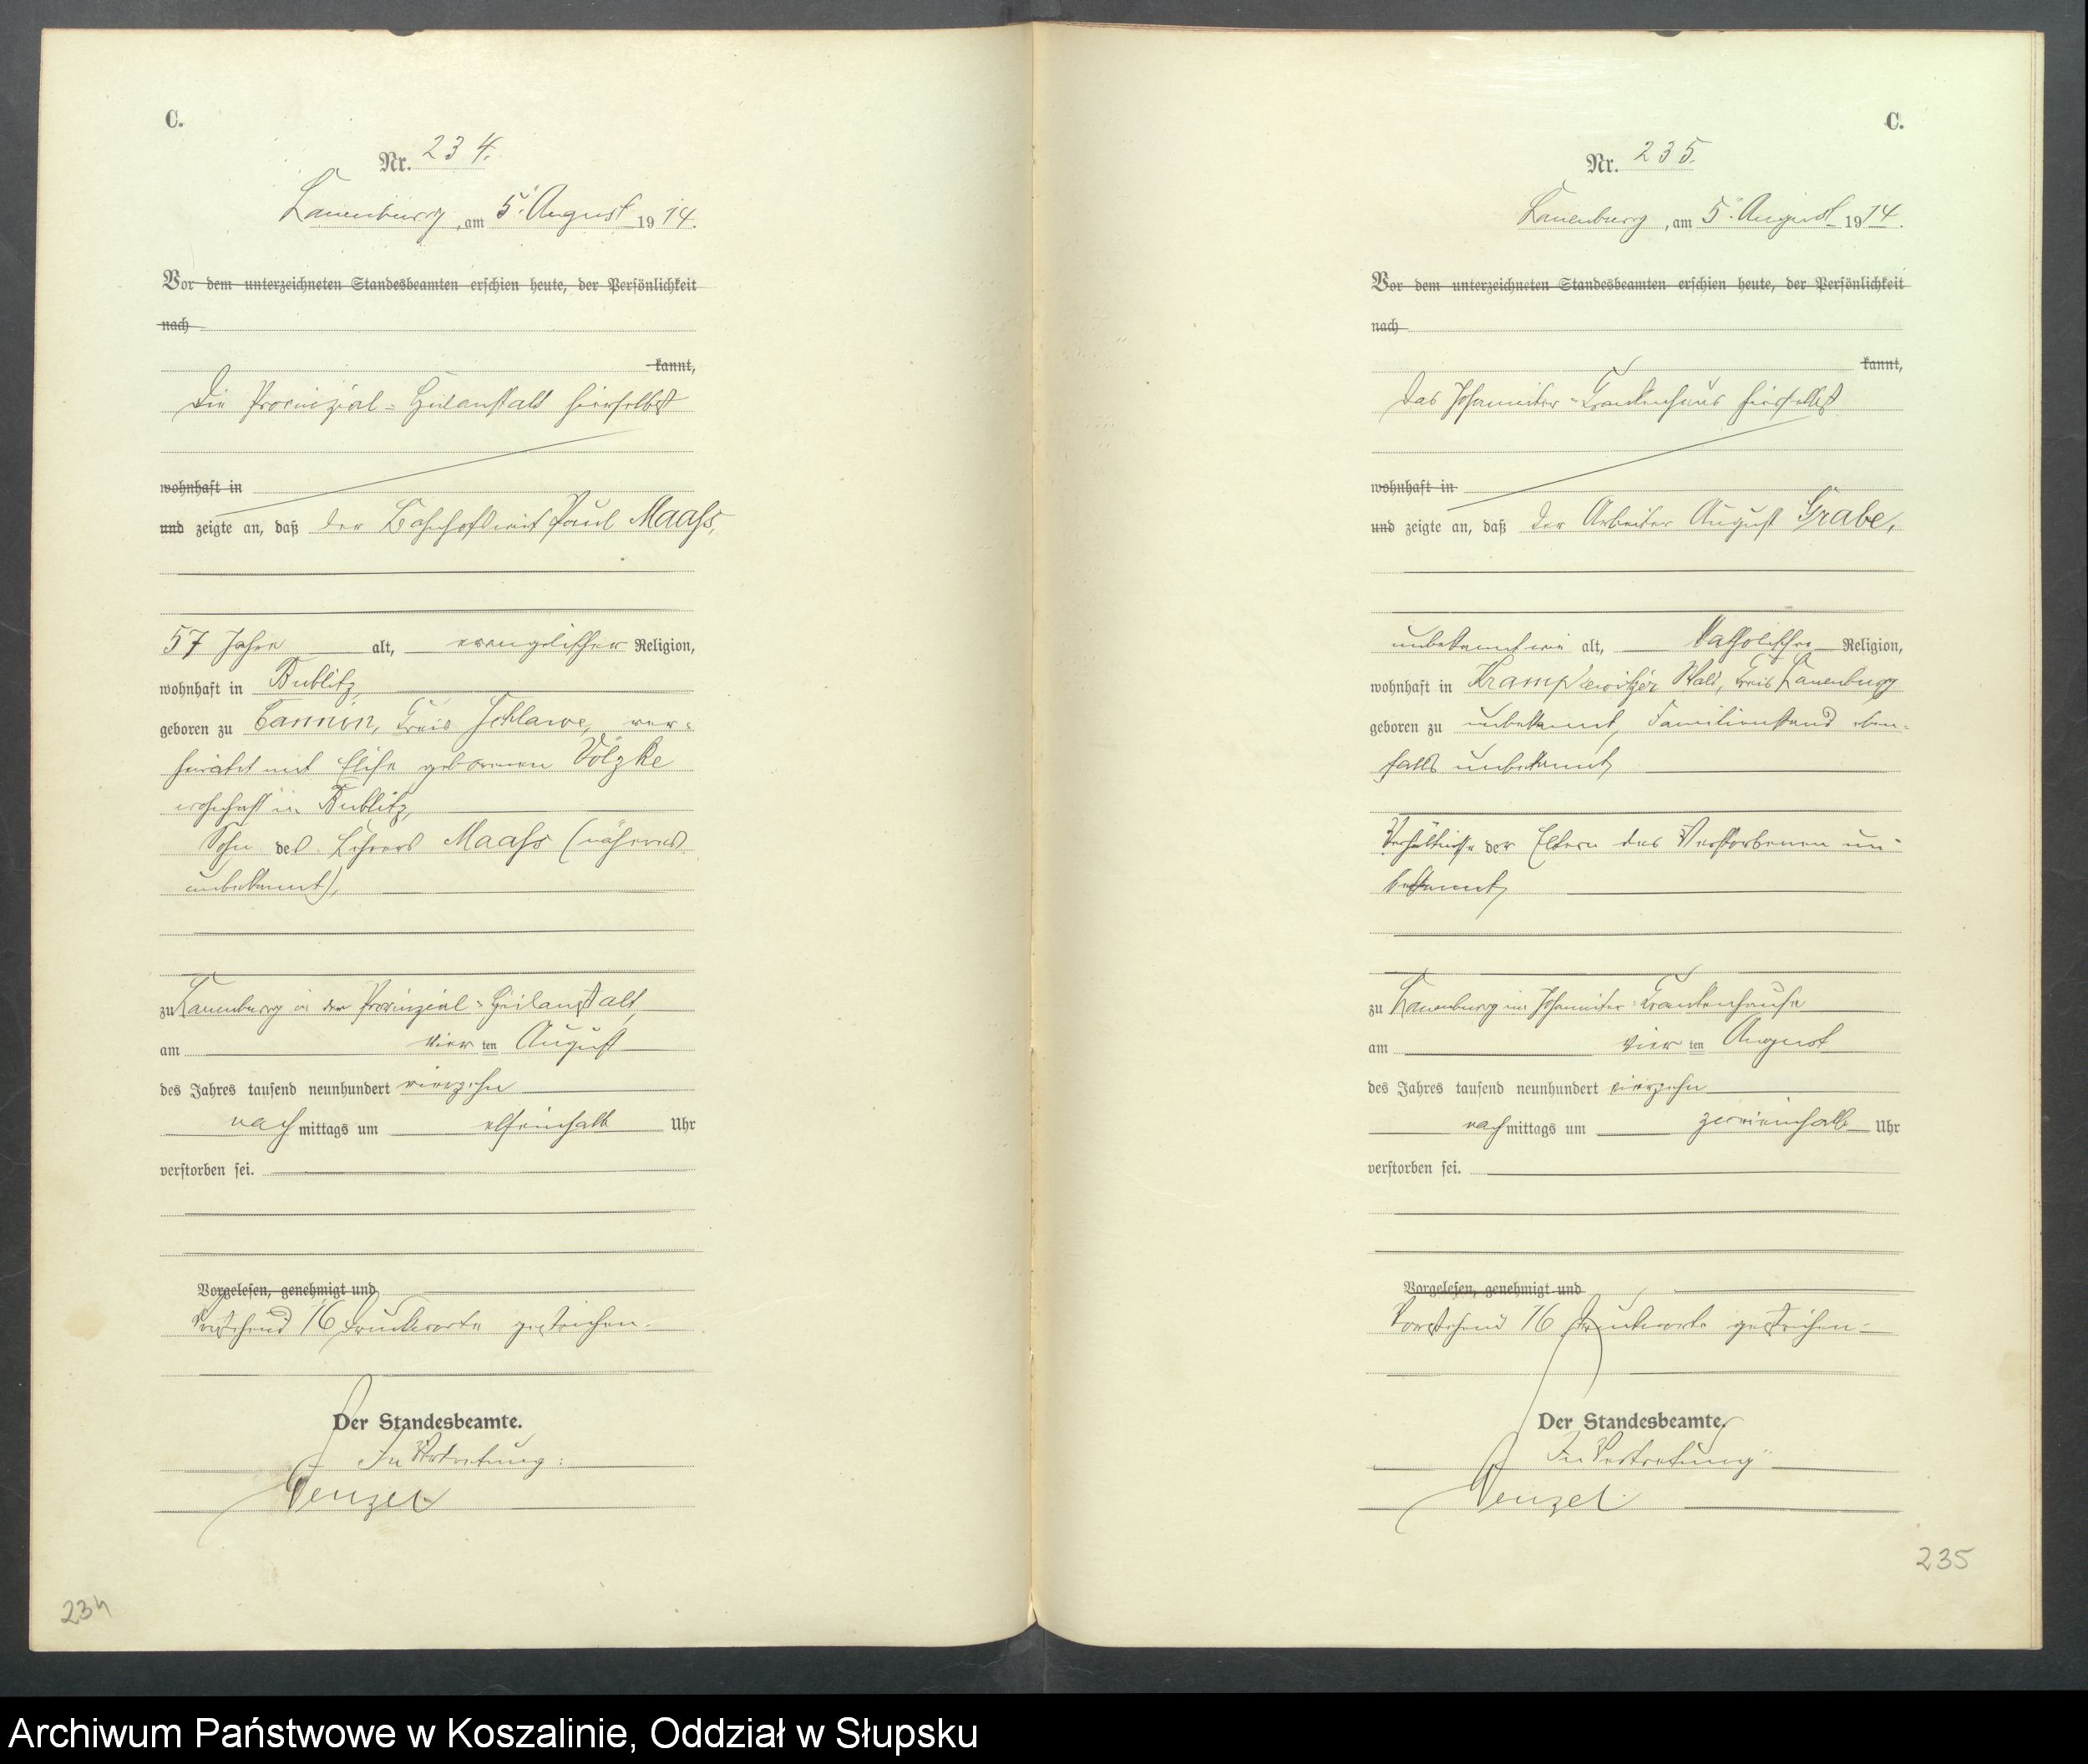 C.
Nr. 234.
Lauenburg, am 5. August 1914.
Vor dem unterzeichneten Standesbeamten erschien heute, der Persönlichkeit
nach
kannt,
Die Provinzial-Heilanstalt hierselbst
wohnhaft in
und zeigte an, daß der Bahnhofswirt Paul Maass,
57 Jahre alt, evangelischer Religion,
wohnhaft in Bublitz,
geboren zu Cannin, Kreis Schlawe, ver-
heiratet mit Elise geborenen Völzke
wohnhaft in Bublitz,
Sohn des Lehrers Maass (näheres
unbekannt),
zu Lauenburg in der Provinzial-Heilanstalt
am vier ten August
des Jahres tausend neunhundert vierzehn
nachmittags um elfeinhalb Uhr
verstorben sei.
Vorgelesen, genehmigt und
Vorstehend 16 Druckworte gestrichen.
Der Standesbeamte.
In Vertretung:
Wenzel
234
C.
Nr. 235.
Lauenburg, am 5. August 1914.
Vor dem unterzeichneten Standesbeamten erschien heute, der Persönlichkeit
nach
kannt,
Das Johanniter-Krankenhaus hierselbst
wohnhaft in
und zeigte an, daß der Arbeiter August Grabe,
unbekannt wie alt, katholischer Religion,
wohnhaft in Krampkewitzer Wald, Kreis Lauenburg
geboren zu unbekannt, Familienstand eben-
falls unbekannt,
Verhältnisse der Eltern des Verstorbenen un-
bekannt,
zu Lauenburg im Johanniter-Krankenhause
am vier ten August
des Jahres tausend neunhundert vierzehn
nachmittags um zweieinhalb Uhr
verstorben sei.
Vorgelesen, genehmigt und
Vorstehend 16 Druckworte gestrichen.
Der Standesbeamte.
In Vertretung
Wenzel
235
Archiwum Państwowe w Koszalinie, Oddział w Słupsku